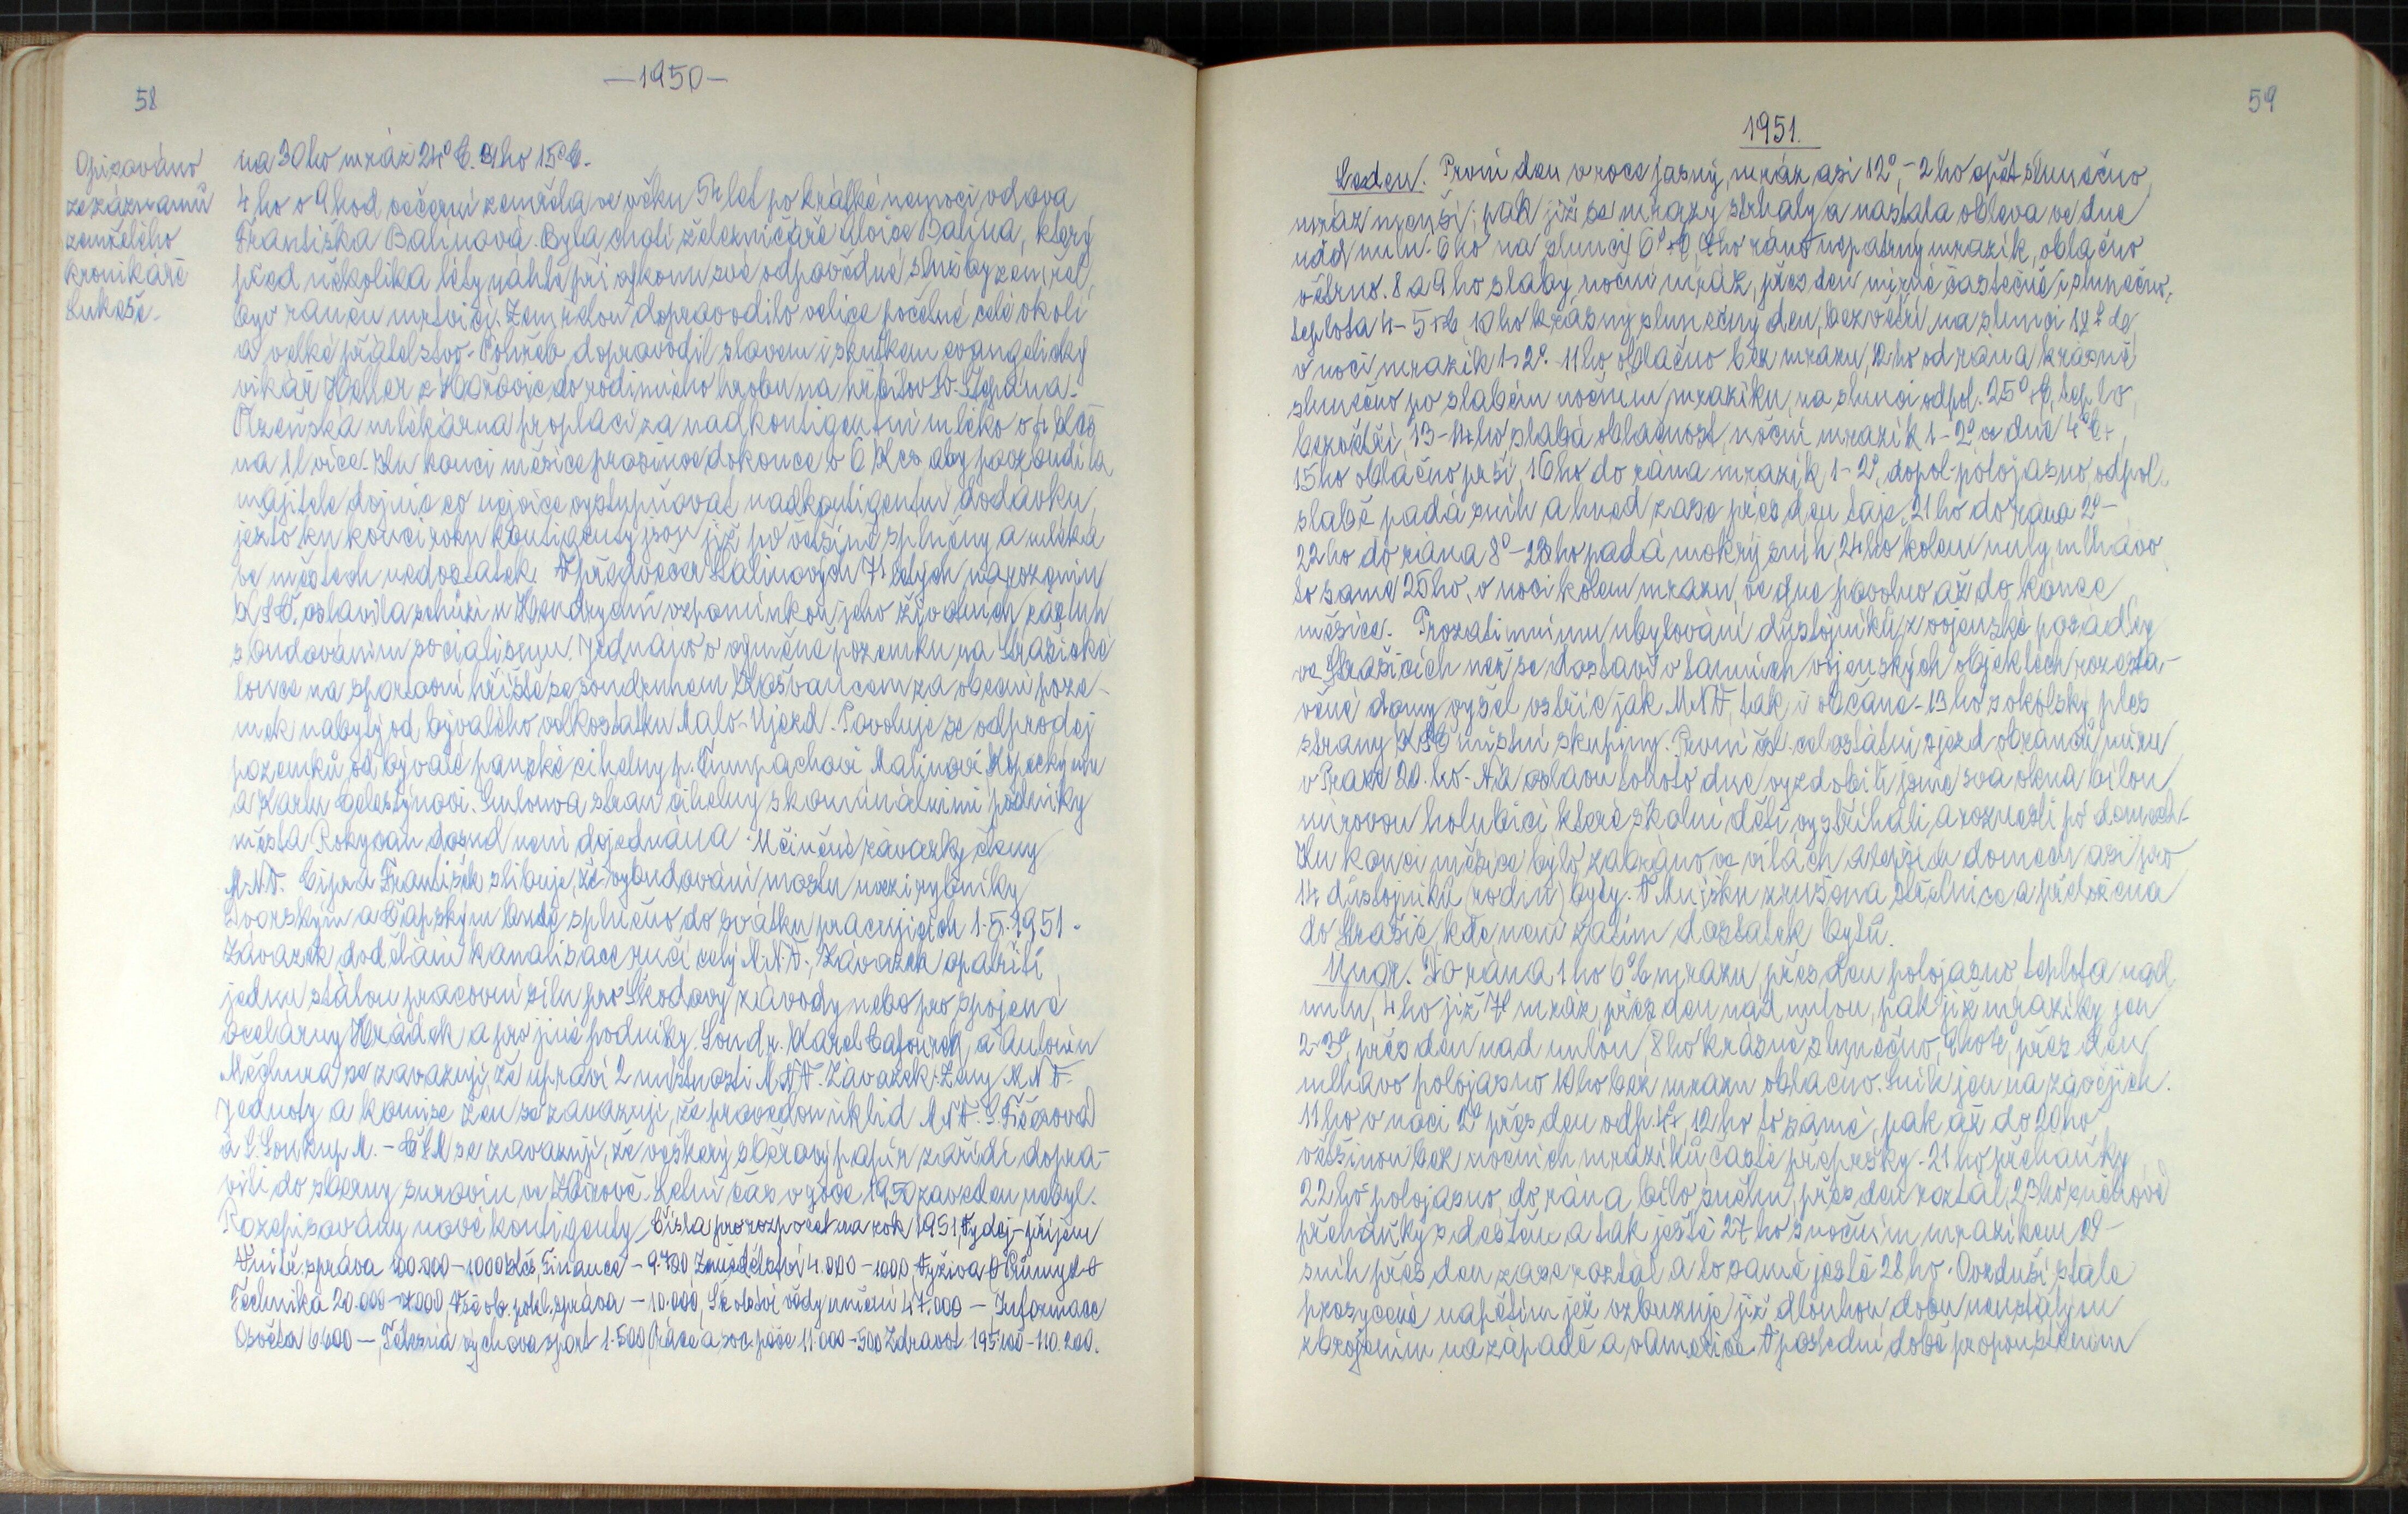 58
—1950—
Opisováno
ze záznamů
zemřelého
kronikáře
Lukeše.
na 30ho mráz 24° C. 31ho 15° C.
4ho o 9 hod večerní zemřela ve věku let po krátké nemoci vdova
Františka Balínová. Byla chotí železničáře Aloise Balína, který
před několika léty náhle při výkonu své odpovědné služby zemřel,
byv raněn mrtvicí. Zemřelou doprovodilo velice početné celé okolí
a velké přátelstvo. Pohřeb doprovodil slovem i skutkem evangelický
vikář Heller z do rodinného hrobu na hřbitov Sv. Štěpána.
Plzeňská mlékárna proplácí za nadkontigentní mléko o 4 Kčs
na 1 l více. Ku konci měsíce prosince dokonce o 6 Kčs aby povzbudila
majitele dojnic co nejvíce vystupňovat nadkontigentní dodávku,
ježto ku konci roku kontigenty jsou již po většině splněny a mléka
ve městech nedostatek. V předvečer Stalinových 71 letých narozenin
KSČ. oslavila schůzi u vzpomínkou jeho životních zásluh
s budováním socialismu. Jednáno o výměně pozemku na Strašické
louce na sportovní hřiště se soudruhem za obecní poze-
mek nabytý od bývalého velkostatku Malo-Újezd. Povoluje se odprodej
pozemků od bývalé panské cihelny p. Malinovi Kopeckýmu
a Karlu Celestýnovi. Smlouva stran cihelny s komunálními podniky
města Rokycan dosud není dojednána. Učiněné závazky členy
M.N.V. František slibuje, že vybudování mostu mezi rybníky
Dvorským a Čápským bude splněno do svátku pracujících 1.5.1951.
Závazek dodělání kanalisace ručí celý M.N.V., Závazek opatřiti
jednu stálou pracovní sílu pro Škodovy závody nebo pro spojené
ocelárny Hrádek a pro jiné podniky. Soudr. Karel a Antonín
se zavazují, že upraví 2 místnosti M.N.V. Závazek: Ženy M.N.V.
Jednoty a komise žen se zavazují, že provedou úklid M.N.V. S.
a S. Soukup M. – ČSM se zavazují, že veškerý sběrový papír zařídí dopra-
viti do sběrny surovin ve Zbirově. Letní čas v roce 1950 zaveden nebyl.
Rozepisovány nové kontigenty, čísla pro rozpočet na rok 1951, Výdej–příjem
Vnitř. správa 100.000–1000 Kčs, Finance – 9.720, Zemědělství 4.000–1000, Výživa 0 Průmysl 0
Technika 20.000–2000, Vše ob. pokl. správa – 10.000, Školství vědy umění 47.000 – Informace
Osvěta 6600 –, Tělesná výchova sport 1.500, Práce a soc. péče 11.000–500 Zdravot. –110.200.
59
1951.
Leden. První den v roce jasný, mráz asi 12°, – 2ho opět slunečno,
mráz menší; pak již se mrazy strhaly a nastala obleva ve dne
nad nulu. 6ho na slunci 6° +C, 7ho ráno nepatrný mrazík, oblačno
větrno. 8 a 9ho slabý noční mráz, přes den mírné částečně i slunečno,
teplota 4–5 +C 10ho krásný slunečný den, bezvětří na slunci
v noci mrazík 1–2°. 11ho, oblačno bez mrazu, 12ho od rána krásně
slunečno po slabém nočním mrazíku, na slunci odpol. 25° +C, teplo,
bezvětří, 13–14ho slabá oblačnost, noční mrazík 1–2° ve dne 4° C+,
15ho oblačno prší, 16ho do rána mrazík 1–2°, dopol. polojasno, odpol.
slabě padá sníh a hned zase přes den taje, 21ho do rána 2°–
22ho do rána 8° – 23ho padá mokrý sníh, 24ho kolem nuly, mlhavo
to samé 25ho, v noci kolem mrazu, ve dne povolno až do konce
měsíce. Prozatímnímu ubytování důstojníků, z vojenské posádky
ve Strašicích než se dostaví v tamních vojenských objektech rozesta-
věné domy vyšel vstříc jak MNV, tak i občané. 13ho sokolský ples
strany KSČ místní skupiny. První čsl. celostátní sjezd obránců míru
v Praze 20.ho. Na oslavu tohoto dne vyzdobili jsme svá okna bílou
mírovou holubicí které školní děti vystříhali, a roznesli po domech.
Ku konci měsíce bylo zabráno ve vilách a lepších domech asi pro
14 důstojníků (rodin) byty. V Mníšku zrušena střelnice a přeložena
do Strašic, kde není zatím dostatek bytů.
Únor. Do rána 1ho 6° C mrazu, přes den polojasno, teplota nad
nulu, 4ho již 7° mráz, přes den nad nulou, pak již mrazíky jen
2–3°, přes den nad nulou, 8ho krásně slunečno, 9ho 4°, přes den
mlhavo polojasno 10ho bez mrazu oblačno. Sníh jen na závějích.
11ho v noci 2° přes den odp. 4+, 12ho to samé, pak až do 20ho
většinou bez nočních mrazíků časté přepršky. 21ho přeháňky
22ho polojasno, do rána bílo sněhu, přes den roztál, 23ho sněhové
přeháňky s deštěm a tak ještě 27ho s nočním mrazíkem 2°–
sníh přes den zase roztál a to samé ještě 28ho. Ovzduší stále
prosycené napětím jež vzbuzuje již dlouhou dobu neustálým
zbrojením na západě a v Americe. V poslední době propouštěním